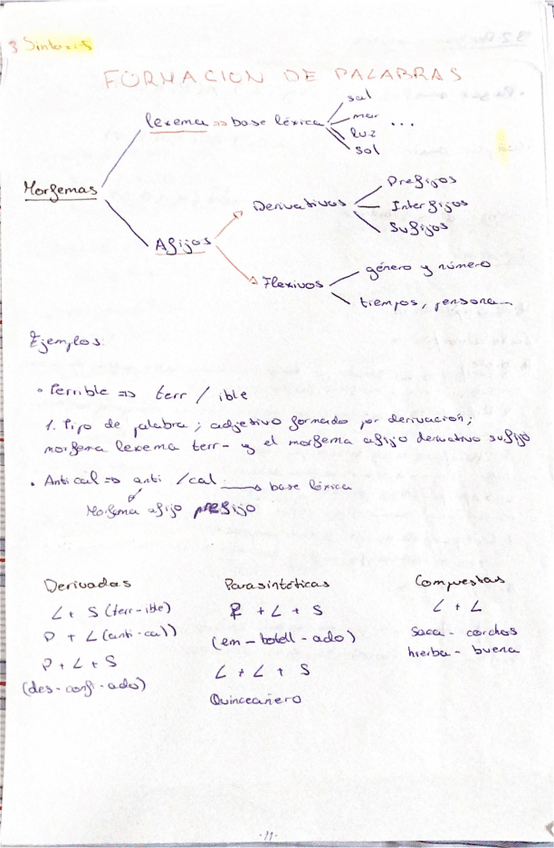 3 Sintaxis
FORMACION DE PALABRAS
Morfemas
lexema => base léxica
sal
mar
luz
sol
...
Afijos
Derivativos
Prefijos
Interfijos
Sufijos
Flexivos
género y número
tiempos, persona...
Ejemplos:
• Terrible => terr / ible
1. Tipo de palabra; adjetivo formado por derivación;
morfema lexema terr- y el morfema afijo derivativo sufijo
• Antical => anti / cal → base léxica
Morfema afijo prefijo
Derivadas
L + S (terr-ible)
P + L (anti-cal)
P + L + S
(des-confi-ado)
Parasintéticas
P + L + S
(em-botell-ado)
L + L + S
Quinceañero
Compuestas
L + L
saca-corchos
hierba-buena
-11-